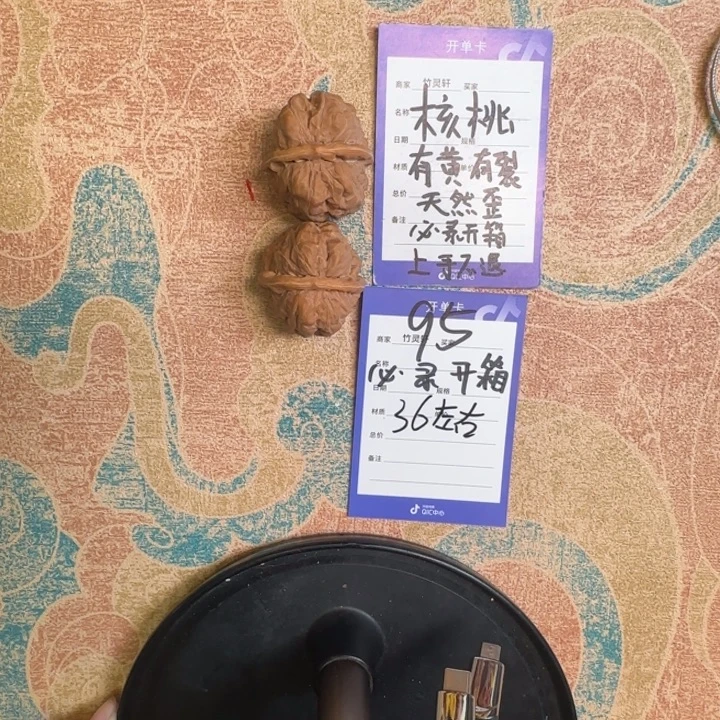 开单卡
商家 竹灵轩 买家
名称 核桃
日期 规格
材质 有黄有裂
总价 天然歪
备注 必录开箱
上手不退
QIC中心
开单卡
95
商家 竹灵轩 买家
名称
必录开箱
日期 规格
材质 36左右
总价
备注
QIC中心